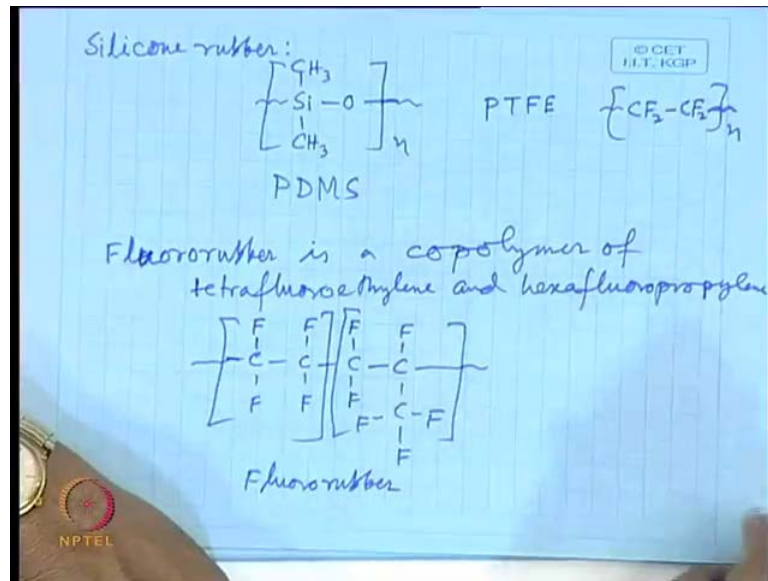 Silicone rubber:
© CET
I.I.T. KGP
CH3
Si — O
CH3
n
PDMS
PTFE
CF2-CF2
n
Fluororubber is a copolymer of
tetrafluoroethylene and hexafluoropropylene
F F F F
C — C — C — C
F F F
F - C - F
F
Fluororubber
NPTEL